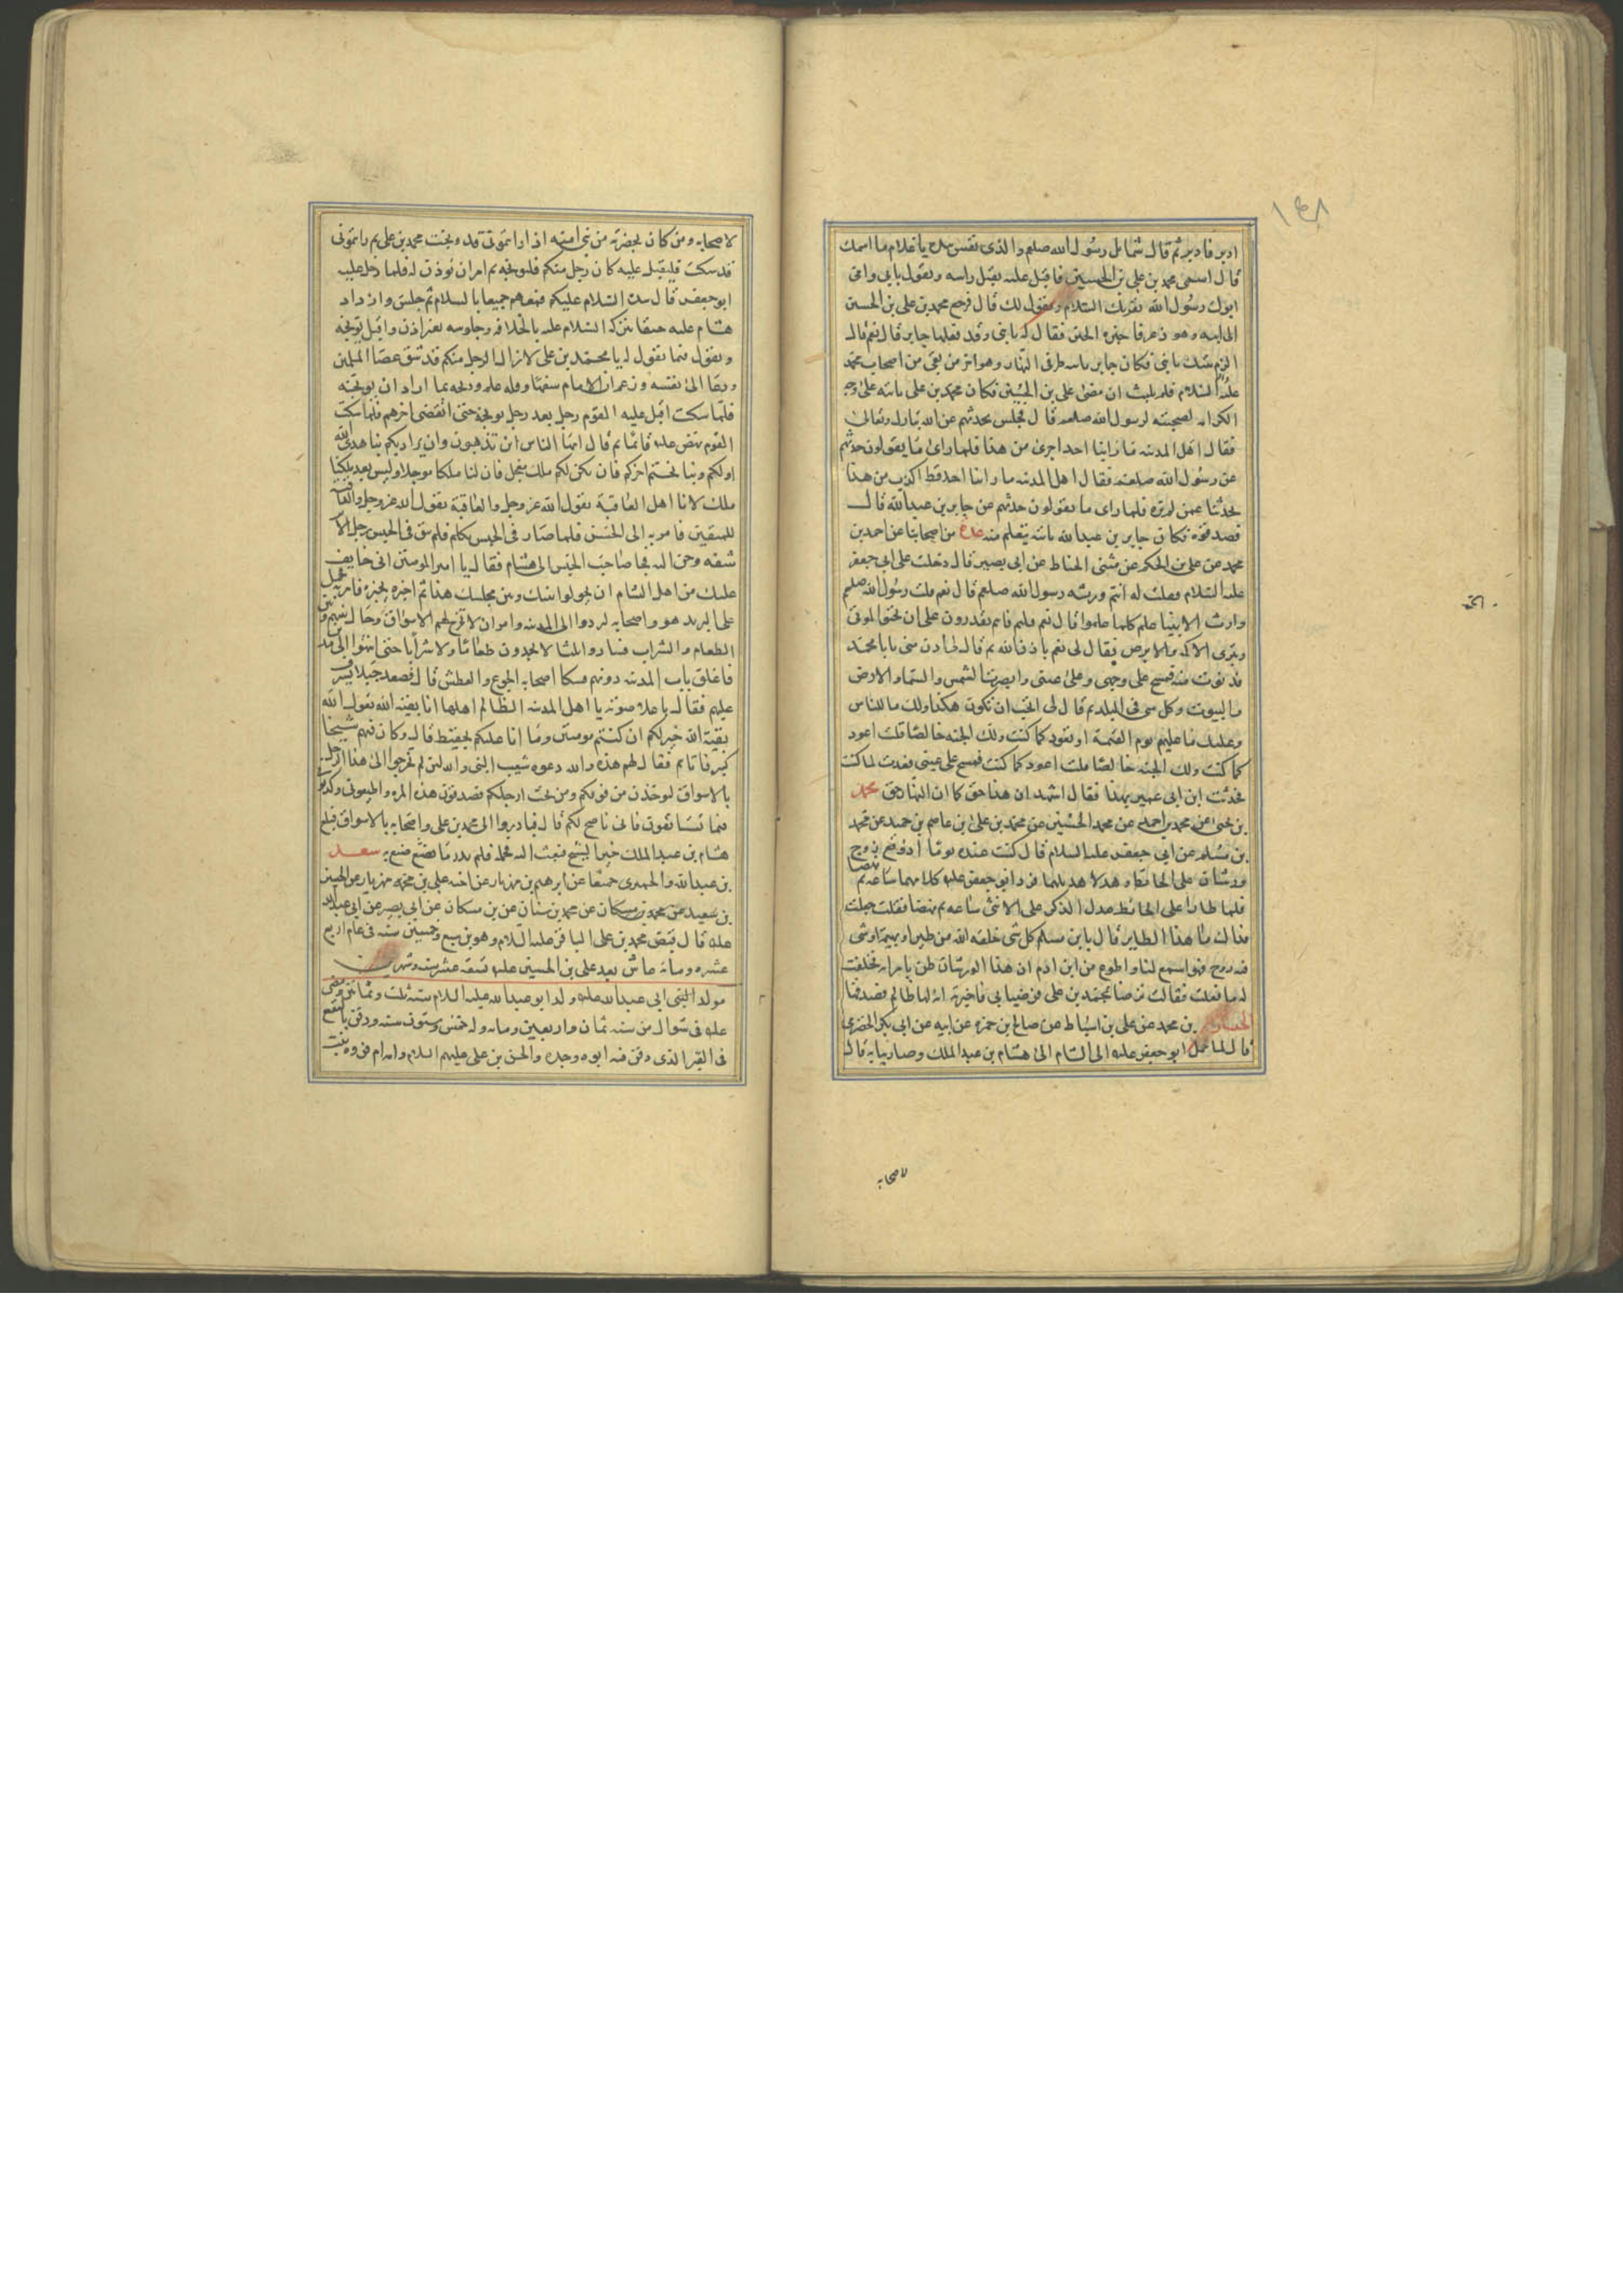 ١٤٨
ادبر فادبر ثم قال شمائل رسول الله صلعم والذى نفسى بيده يا غلام ما اسمك
قال اسمى محمد بن على بن الحسين فاقبل عليه يقبل راسه ويقول بابى وامى
ابوك رسول الله يقريك السلام ويقول لك قال فرجع محمد بن على بن الحسين
الى ابيه وهو ذعر فاخبره الخبر فقال له يا بنى وقد فعلها جابر قال نعم قال
الزم بيتك يا بنى فكان جابر ياتيه طرفى النهار وهو اخر من بقى من اصحاب محمد
عليه السلام فلم يلبث ان مضى على بن الحسين فكان محمد بن على ياتيه على وجه
الكرامه لصحبته لرسول الله صلعم قال فجلس يحدثهم عن الله تبارك وتعالى
فقال اهل المدينه ما راينا احدا اجرى من هذا فلما راى ما يقولون حدثهم
عن رسول الله صلعم فقال اهل المدينه ما راينا احد قط اكذب من هذا
يحدثنا عمن لم يره فلما راى ما يقولون حدثهم عن جابر بن عبدالله قال
فصدقوه فكان جابر بن عبدالله ياتيه يتعلم منه عدة من اصحابنا عن احمد بن
محمد عن على بن الحكم عن مثنى الحناط عن ابى بصير قال دخلت على ابى جعفر
عليه السلام فقلت له انتم ورثه رسول الله صلعم قال نعم قلت رسول الله صلعم
وارث الانبيا علم كلما علموا قال نعم قلت فانتم تقدرون على ان تحيوا الموتى
وتبرى الاكمه والابرص فقال لى نعم باذن الله ثم قال لى ادن منى يا با محمد
فدنوت منه فمسح على وجهى وعلى عينى وابصرت الشمس والسما والارض
والبيوت وكل شى فى البلد ثم قال لى اتحب ان تكون هكذا ولك ما للناس
وعليك ما عليهم يوم القيمة او تعود كما كنت ولك الجنه خالصا قلت اعود
كما كنت ولك الجنه خالصا قلت اعود كما كنت فمسح على عينى فعدت كما كنت
فحدثت ابن ابى عمير بهذا فقال اشهد ان هذا حق كما ان النهار حق محمد
بن يحيى عن محمد بن احمد عن محمد الحسين عن محمد بن على عن عاصم بن حميد عن محمد
بن مسلم عن ابى جعفر عليه السلام قال كنت عنده يوما اذ وقع زوج
ورشان على الحائط وهدلا هديلهما فرد ابو جعفر عليه كلامهما ساعه ثم نهضا
فلما طارا على الحائط هدل الذكر على الانثى ساعه ثم نهضا فقلت جعلت
فداك ما هذا الطاير قال يا بن مسلم كل شى خلقه الله من طير او بهيمة او شى
فيه روح فهو اسمع لنا واطوع من ابن ادم ان هذا الورشان ظن بامراته فحلفت
له ما فعلت فقالت ترضا بمحمد بن على فرضيا بى فاخبرته انه لها ظالم فصدقها
الحسين بن محمد عن على بن اسباط عن صالح بن حمزه عن ابيه عن ابى بكر الحضرمى
قال لما حمل ابو جعفر عليه الى الشام الى هشام بن عبد الملك وصار ببابه قال
لاصحابه
لاصحابه ومن كان بحضرته من بنى اميه اذا رايتمونى قد وبخت محمد بن على ثم رايتمونى
قد سكت فليقبل عليه كل رجل منكم فليوبخه ثم امر ان يوذن له فلما دخل عليه
ابو جعفر قال بيده السلام عليكم فعمهم جميعا بالسلام ثم جلس وازداد
هشام عليه حنقا بتركه السلام عليه بالخلافه وجلوسه بغير اذن واقبل يوبخه
ويقول فيما يقول له يا محمد بن على لا يزال الرجل منكم قد شق عصا المسلمين
ودعا الى نفسه وزعم انه الامام سفها وقله علم ووبخه بما اراد ان يوبخه
فلما سكت اقبل عليه القوم رجل بعد رجل يوبخه حتى انقضى اخرهم فلما سكت
القوم نهض عليه قائما ثم قال ايها الناس اين تذهبون واين يراد بكم بنا هدى الله
اولكم وبنا يختم اخركم فان يكن لكم ملك معجل فان لنا ملكا موجلا وليس بعد ملكنا
ملك لانا اهل العاقبة يقول الله عز وجل والعاقبة يقول الله عز وجل والعاقبة
للمتقين فامر به الى الحبس فلما صار فى الحبس تكلم فلم يبق فى الحبس رجل الا
ترشفه وحن اليه فجا صاحب الحبس الى هشام فقال يا امير المومنين انى خايف
عليك من اهل الشام ان يحولوا بينك وبين مجلسك هذا ثم اخبره بخبره فامر به فحمل
على البريد هو واصحابه ليردوا الى المدينه وامر ان لا تخرج لهم الاسواق وحال بينهم وبين
الطعام والشراب فساروا ثلثا لا يجدون طعاما ولا شرابا حتى انتهوا الى مدين
فاغلق باب المدينه دونهم فشكا اصحابه الجوع والعطش قال فصعد جبلا يشرف
عليهم فقال باعلا صوته يا اهل المدينه الظالم اهلها انا بقيه الله يقول الله
بقية الله خير لكم ان كنتم مومنين وما انا عليكم بحفيظ قال وكان فيهم شيخا
كبير فاتاهم فقال لهم هذه والله دعوه شعيب النبى والله لئن لم تخرجوا الى هذا الرجل
بالاسواق لتوخذن من فوقكم ومن تحت ارجلكم فصدقونى هذه المره واطيعونى وكذبونى
فيما تستانفون فانى ناصح لكم قال فبادروا الى محمد بن على واصحابه بالاسواق فبلغ
هشام بن عبدالملك خبر الشيخ فبعث اليه فحمله فلم يدر ما صنع به سعد
بن عبدالله والحميرى جميعا عن ابرهيم بن مهزيار عن اخيه على بن مهزيار عن الحسين
بن سعيد عن محمد بن سنان عن بن مسكان عن ابى بصير عن ابى عبدالله
عليه قال قبض محمد بن على الباقر عليه السلام وهو بن سبع وخمسين سنه فى عام اربع
عشره ومائه عاش بعد على بن الحسين عليه تسعه عشر سنه وشهرين
مولد النبى ابى عبدالله عليه ولد ابو عبدالله عليه السلام سنه ثلث وثمانين ومضى
عليه فى شوال من سنه ثمان واربعين ومايه وله خمس وستون سنه ودفن بالبقيع
فى القبر الذى دفن فيه ابوه وجده والحسن بن على عليهم السلام وامه ام فروه بنت